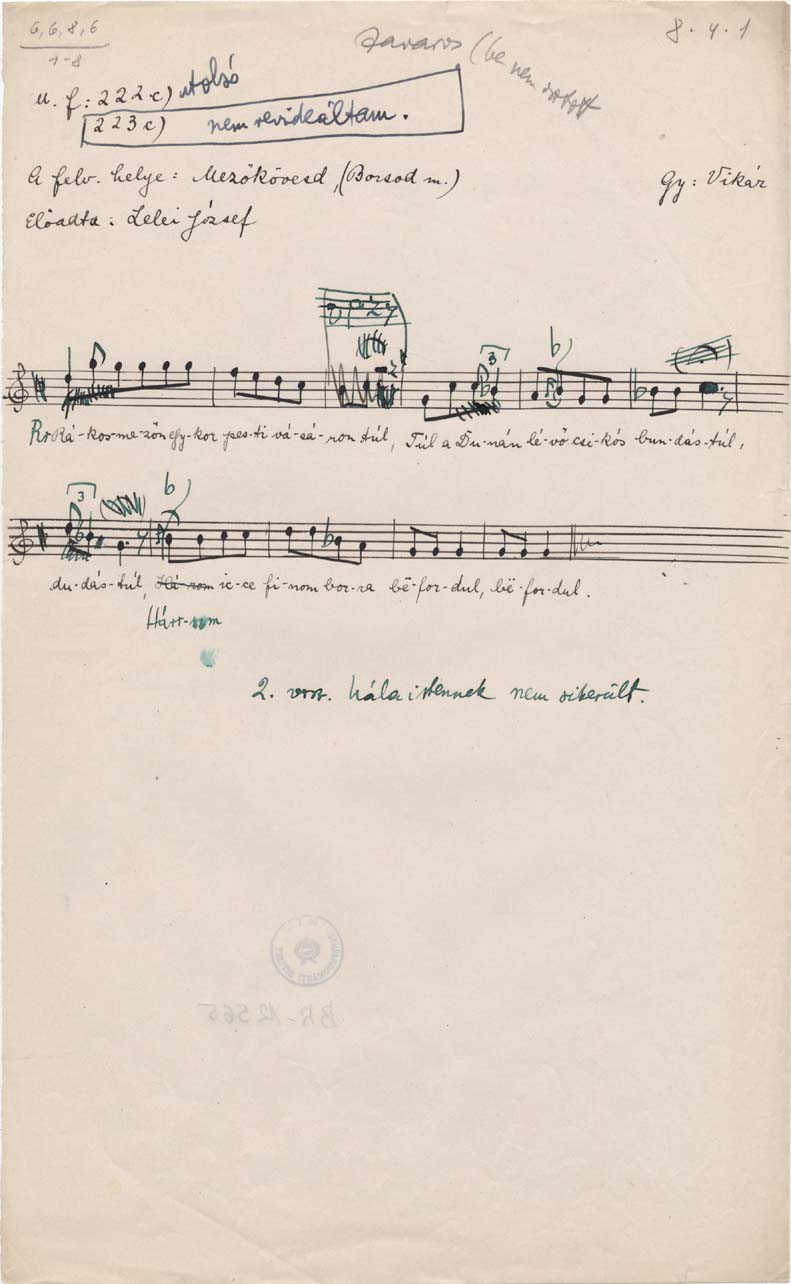 6, 6, 8, 6
1-8
zavaros (be nem
8. 4. 1
M. f: 222c) utolsó
223c) nem revideáltam.
A felv. helye: Mezőkövesd, (Borsod m.)
Gy: Vikár
Előadta: Lelei József
3
b)
Rr Rá-kos-me-zőn egy-kor pes-ti vá-sá-ron túl, Túl a Du-nán lé-vő csi-kós bun-dás-túl,
3
b)
du-dás-túl, Há-rom ic-ce fi-nom bor-ra bë-for-dul, bë-for-dul.
Hárr-rom
2. vrsz. hála istennek nem sikerült.
BR-12565